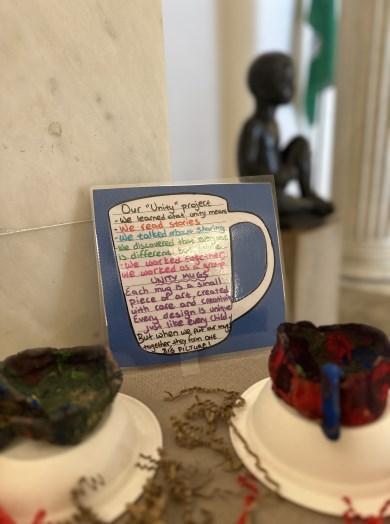 Our "Unity" project
- We learned what unity means
- We read stories
- We talked about sharing
- We discovered that everyone
is different, but
- We worked together
We worked as a group
UNITY MUGS
Each mug is a small
piece of art, created
with care and creativity
Every design is unique
just like every child
But when we put our mugs
together, they form ONE
BIG PICTURE!